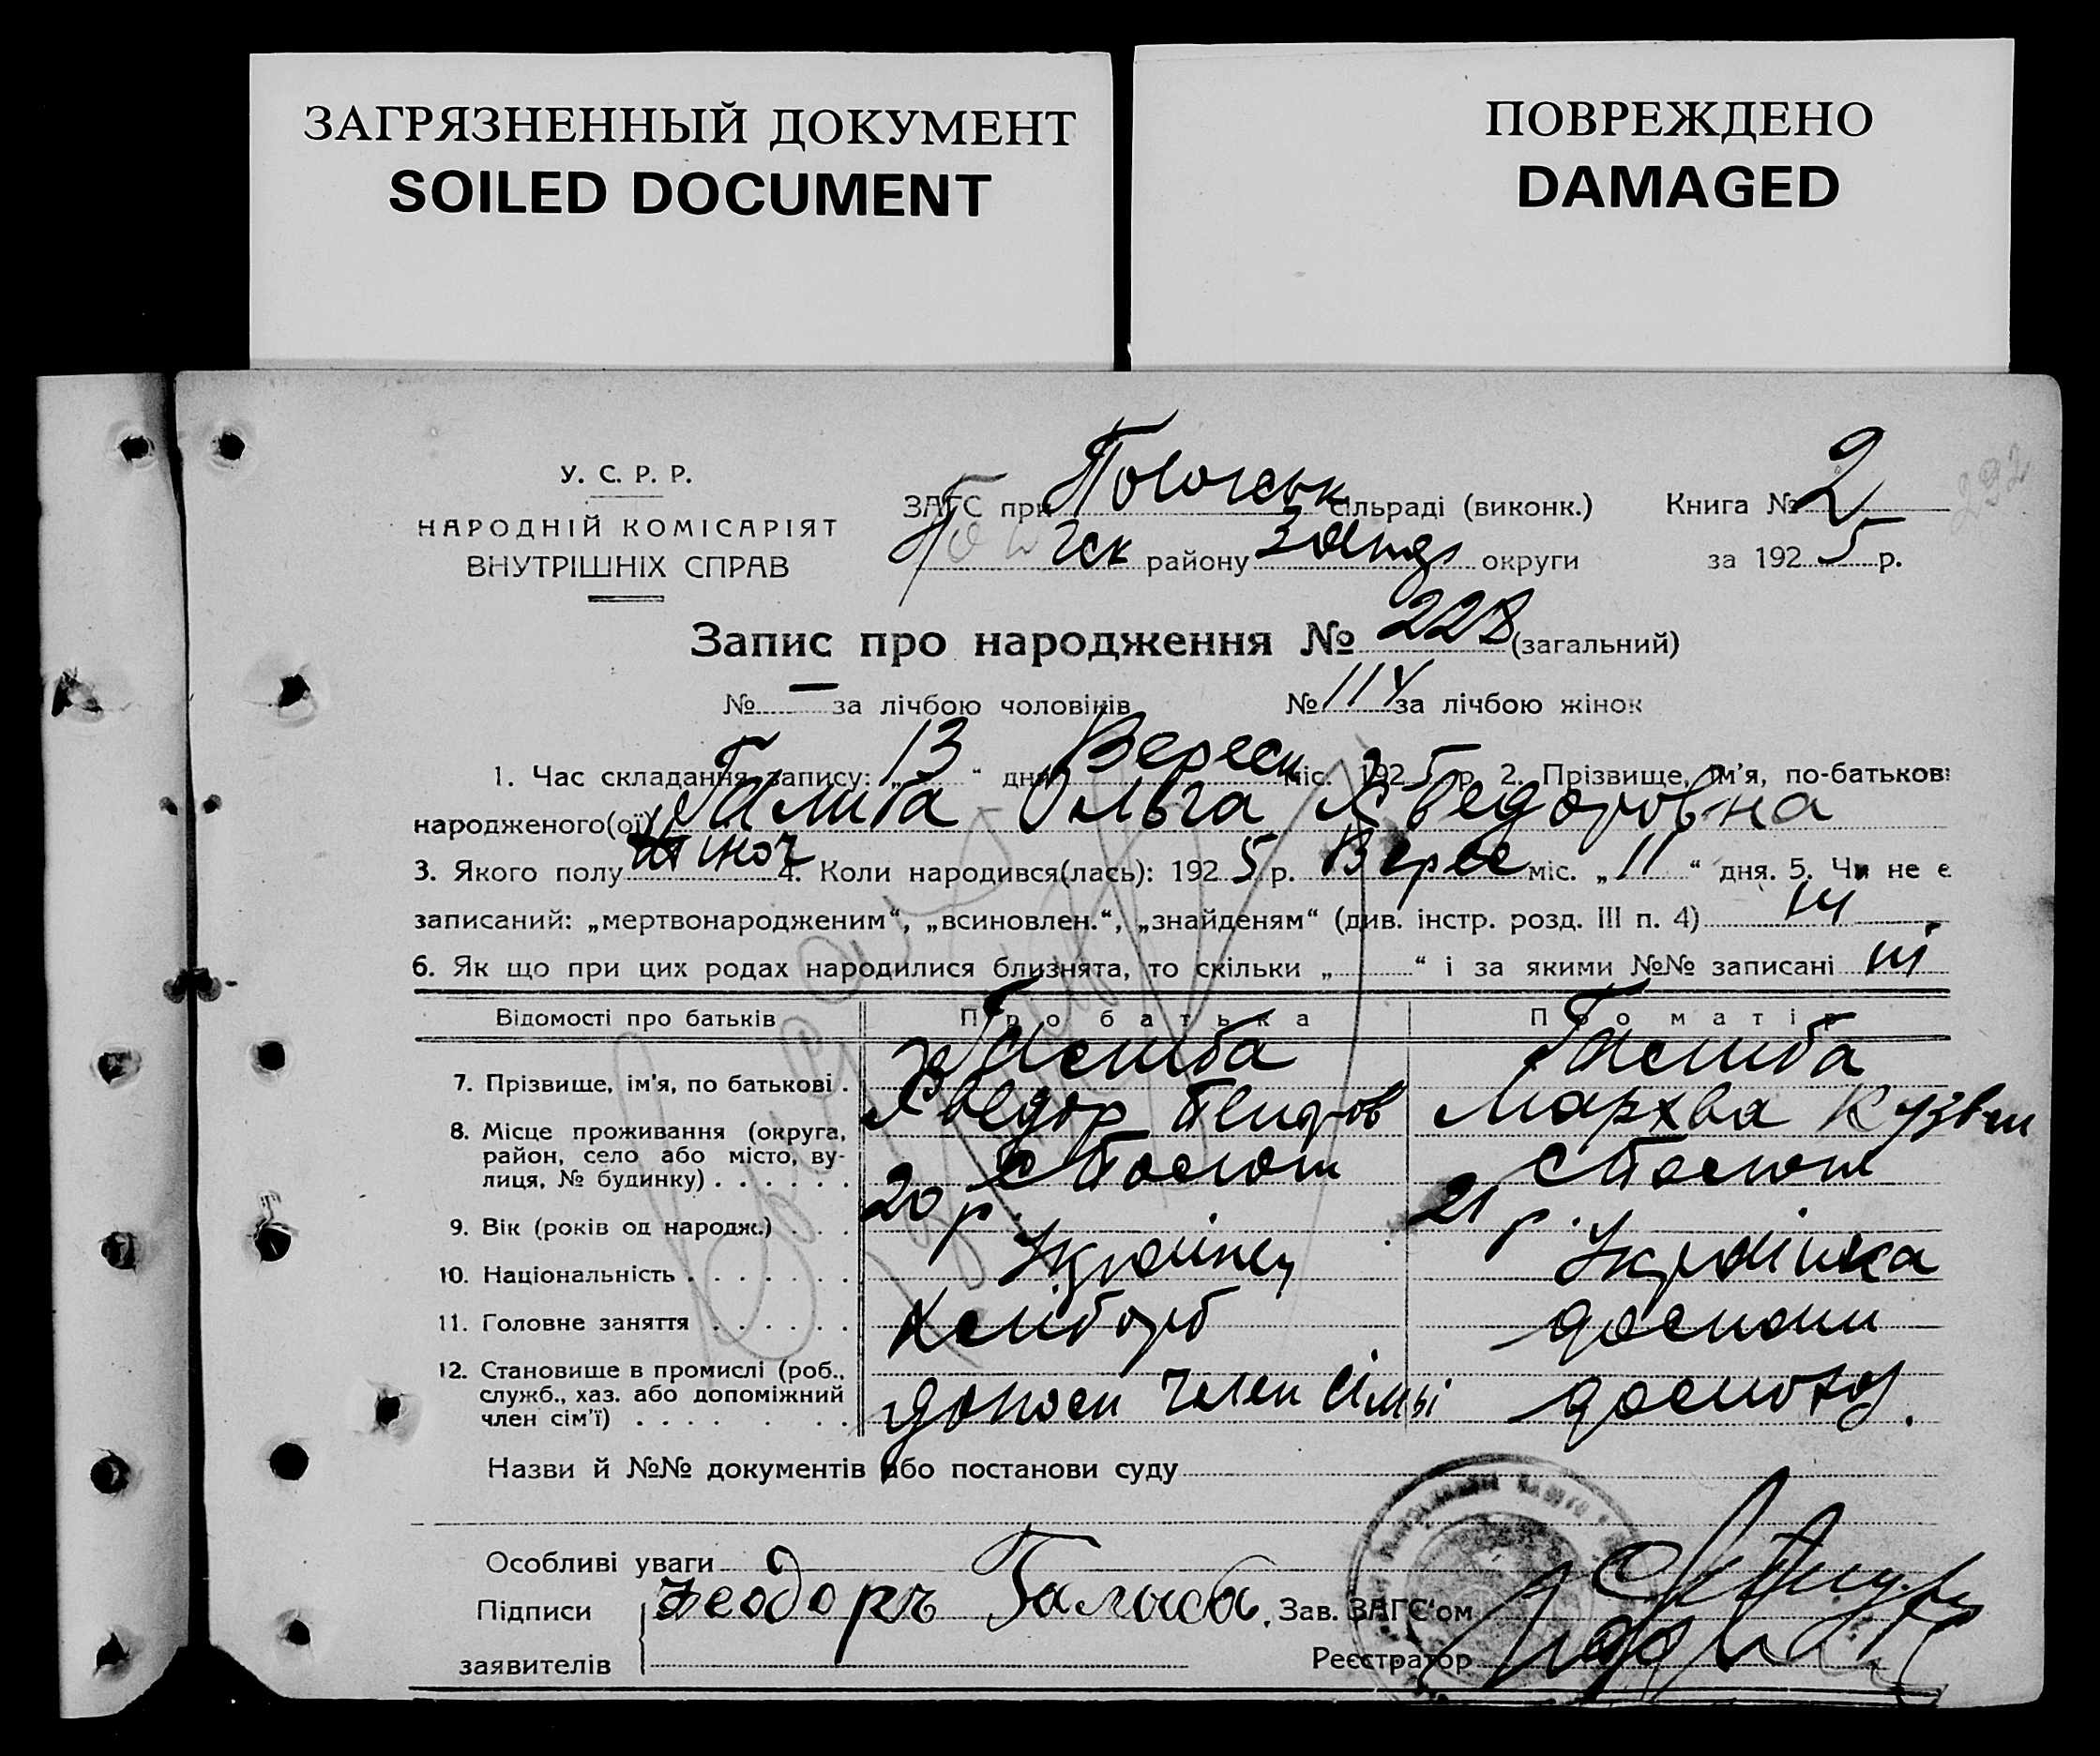 ЗАГРЯЗНЕННЫЙ ДОКУМЕНТ
SOILED DOCUMENT
ПОВРЕЖДЕНО
DAMAGED
У. С. Р. Р.
НАРОДНІЙ КОМІСАРІЯТ
ВНУТРІШНІХ СПРАВ
ЗАГС при сільраді (виконк.)
району округи
Книга № 2
за 1925 р.
292
Запис про народження № 228 (загальний)
№ — за лічбою чоловіків № 114 за лічбою жінок
1. Час складання запису: „ 13 “ дня Вересн міс. 1925 р. 2. Прізвище, ім'я, по-батькові
народженого(ої) Ольга Хведоровна
3. Якого полу жіноч 4. Коли народився(лась): 1925 р. Верес міс. „ 11 “ дня. 5. Чи не є
записаний: „мертвонародженим“, „всиновлен.“, „знайденям“ (див. інстр. розд. III п. 4) ні
6. Як що при цих родах народилися близнята, то скільки „ “ і за якими №№ записані ні
Відомості про батьків Про батька Про матір
7. Прізвище, ім'я, по батькові .
Хведор
Мархва Кузьм
8. Місце проживання (округа,
район, село або місто, ву-
лиця, № будинку) . . . . . .
9. Вік (років од народж.) . . . 20 р. 21 р.
10. Національність . . . . . . . Українец Українка
11. Головне заняття . . . . . . Хлібороб
12. Становище в промислі (роб.,
служб., хаз. або допоміжний
член сім'ї) . . . . . . . член сімьі
Назви й №№ документів або постанови суду
Особливі уваги
Підписи Ѳеодоръ Зав. ЗАГС'ом
заявителів Реєстратор